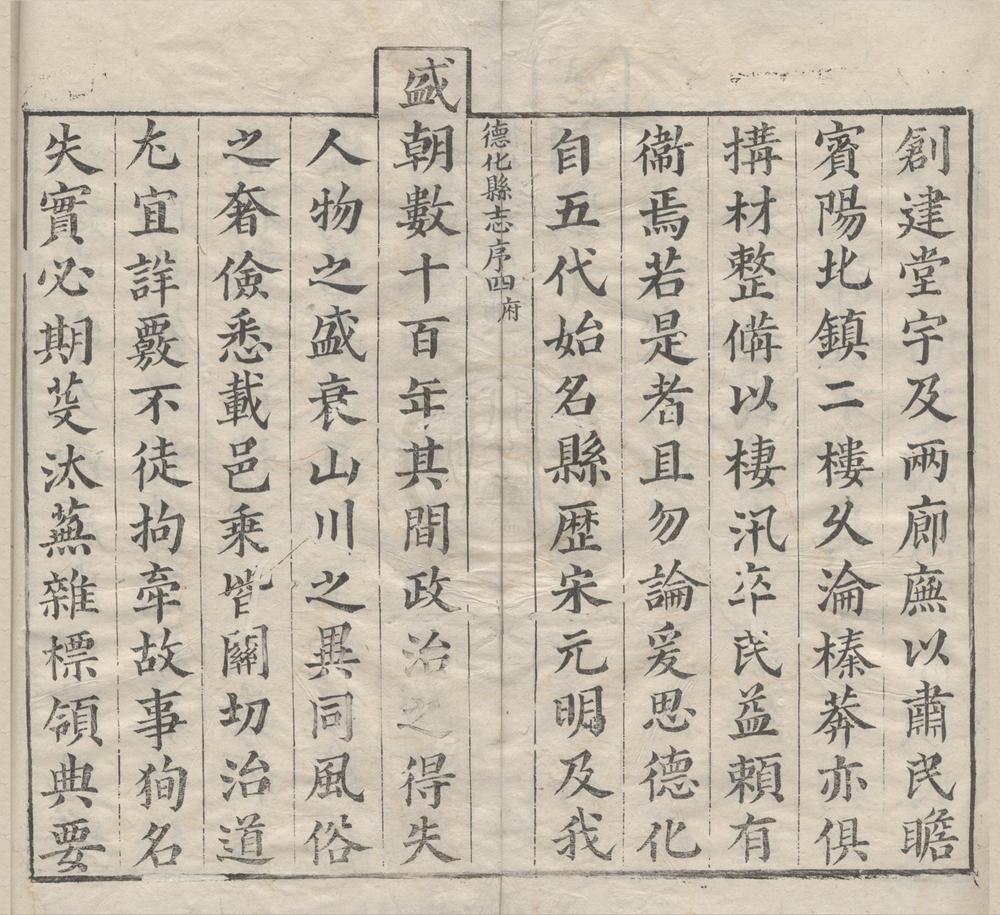 創建堂宇及兩廊廡以肅民瞻
賓陽北鎮二樓久淪榛莽亦俱
搆材整備以棲汛卒民益頼有
衞焉若是者且勿論爰思德化
自五代始名縣歴宋元明及我
德化縣志序四府
盛朝數十百年其間政治之得失
人物之盛衰山川之異同風俗
之奢儉悉載邑乘皆關切治道
尤宜詳覈不徒拘牽故事狥名
失實必期芟汰蕪雜標領典要